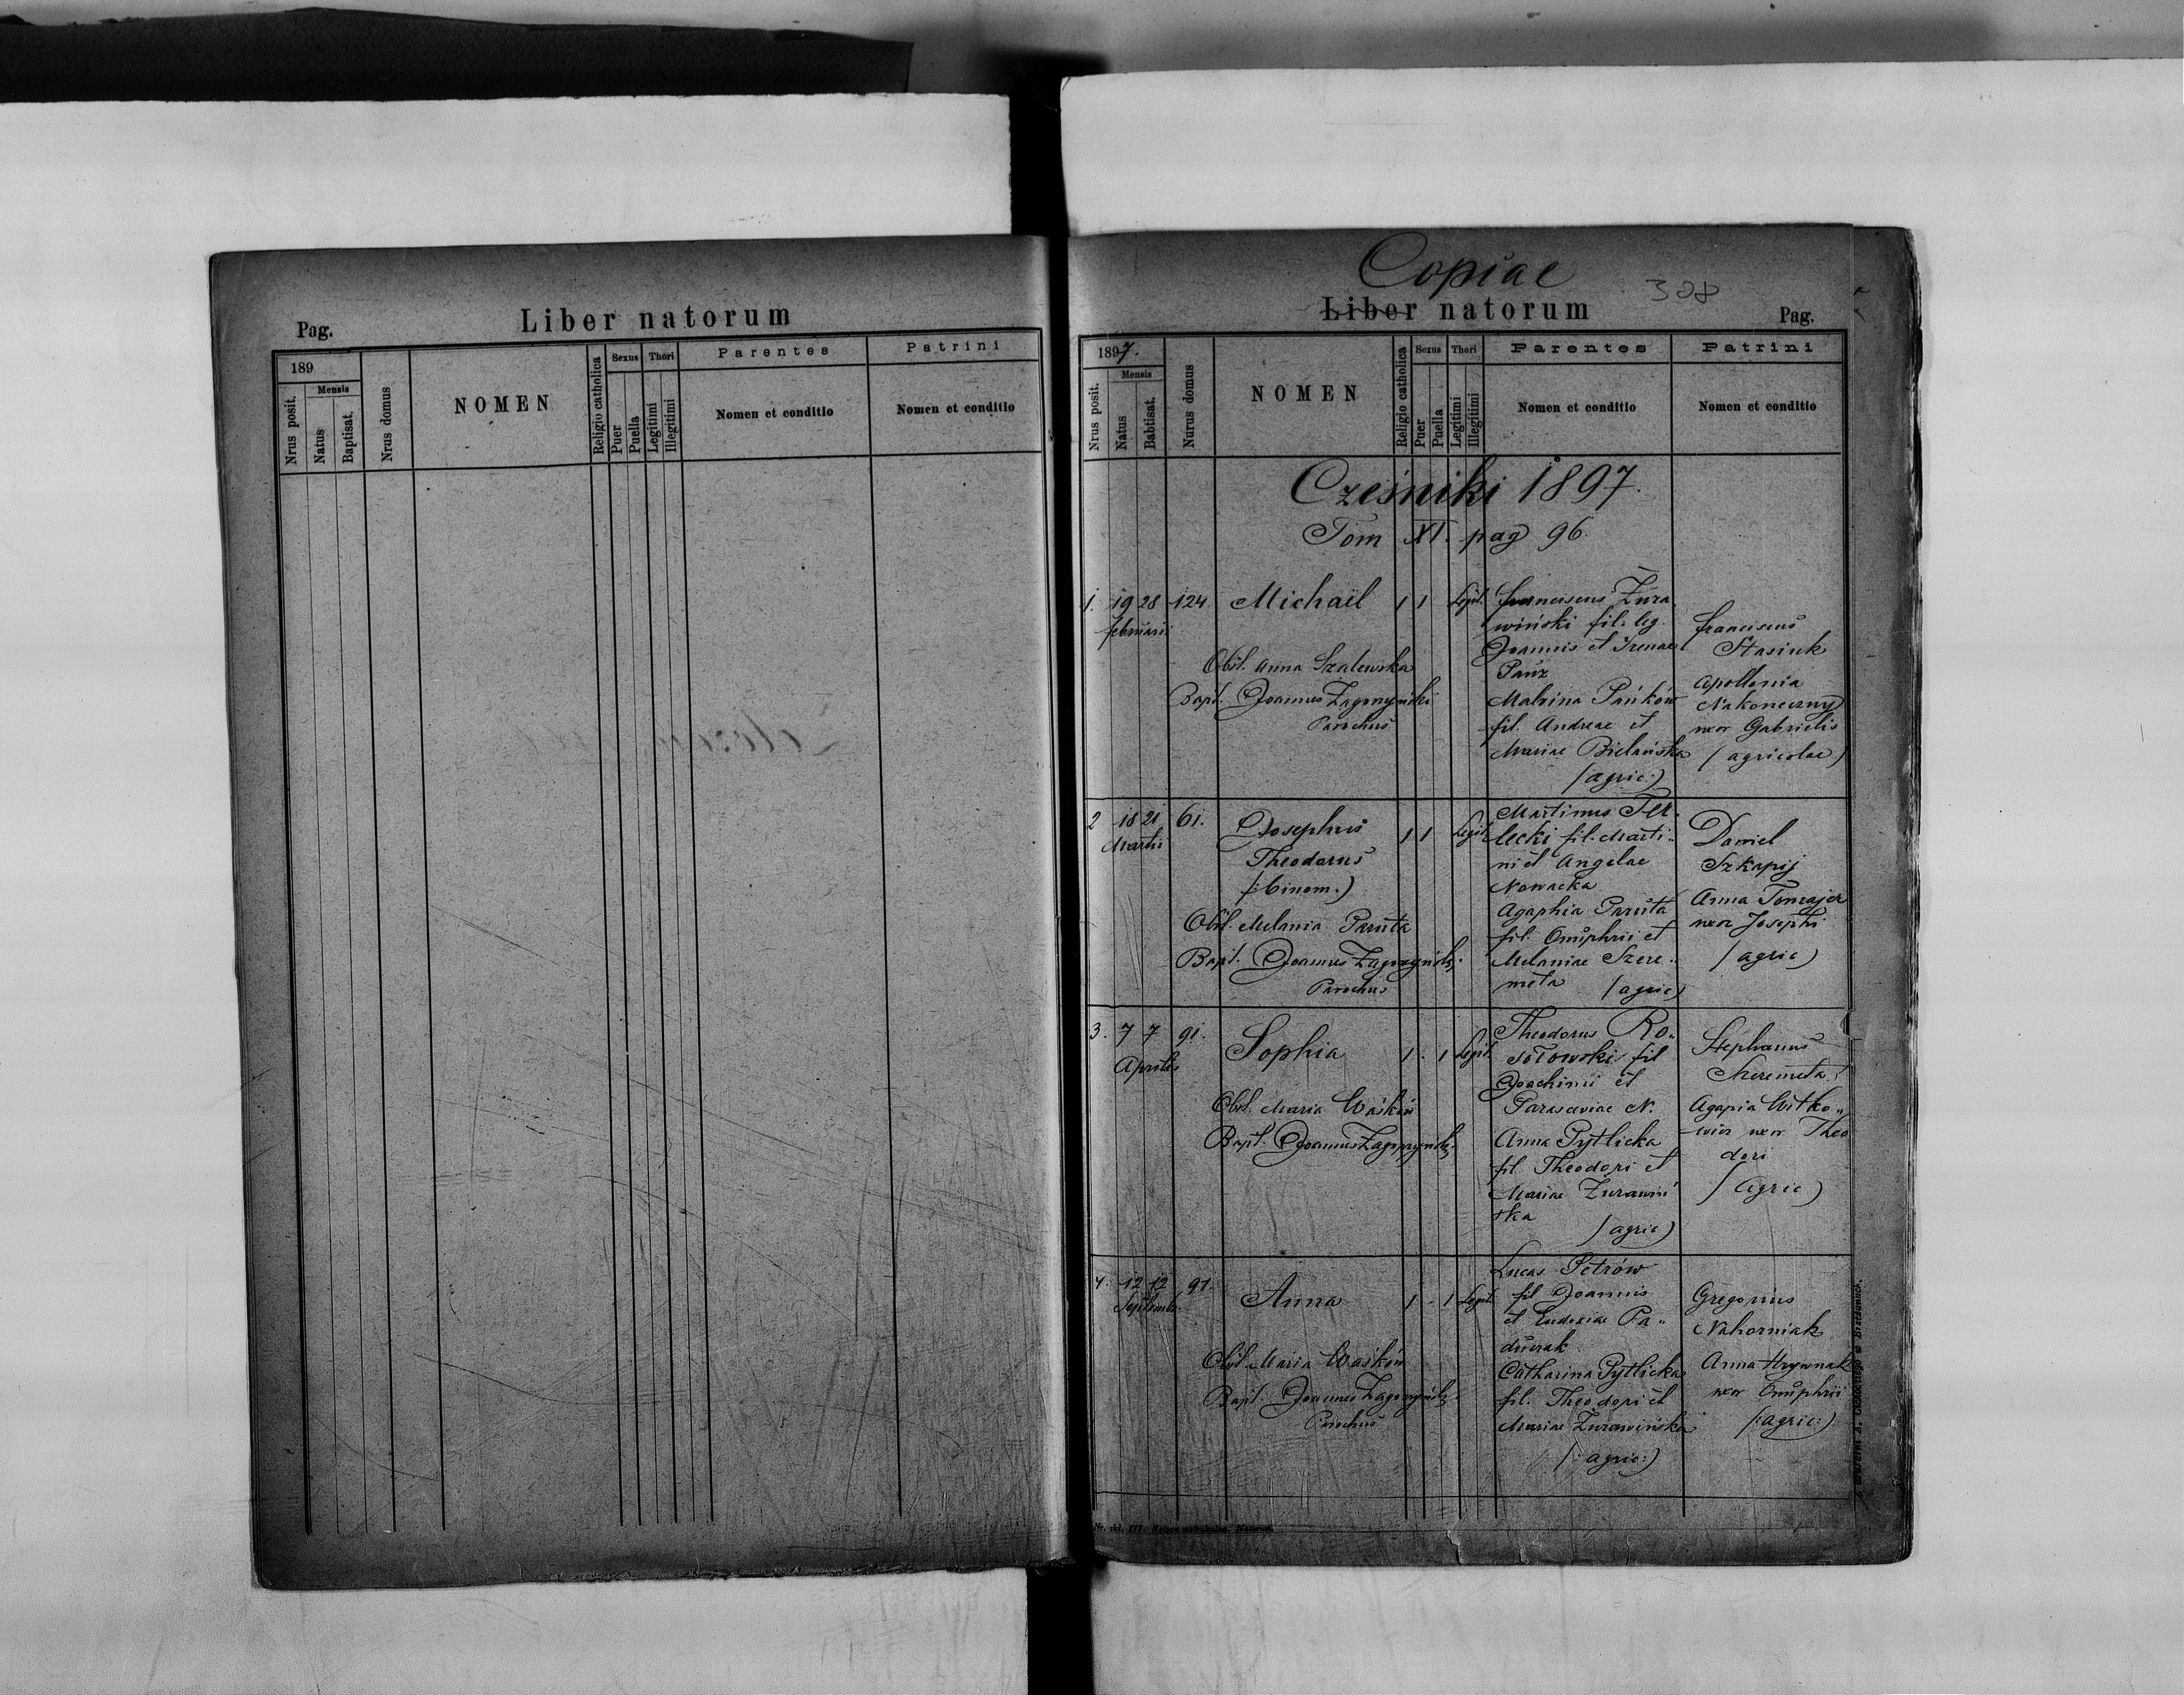 Pag.
Liber natorum
189
Nrus posit.
Mensis
Natus
Baptisat.
Nrus domus
NOMEN
Religio catholica
Sexus
Puer
Puella
Thori
Legitimi
Illegitimi
Parentes
Nomen et conditio
Patrini
Nomen et conditio
Copiae
308
Liber natorum
Pag.
1897.
Nrus posit.
Mensis
Natus
Babtisat.
Nurus domus
NOMEN
Religio catholica
Sexus
Puer
Puella
Thori
Legitimi
Illegitimi
Parentes
Nomen et conditio
Patrini
Nomen et conditio
Cześniki 1897.
Tom XI. pag 96.
1. 19 28 124 Michaël 1 1 Legit.
februarii
Obst. Anna Szalewska
Bapt. Joannes Zagórzyński
Parochus
Franciscus Żura
wiński fil. leg.
Joannis et Irenae
Pańz
Malvina Pańków
fil. Andreae et
Mariae Bielańska
(agric:)
Franciscus
Stasiuk
Apollonia
Nakoneczny
uxor Gabrielis
(agricolae)
2 18 21 61. Josephus 1 1 Legit.
Martii
Theodorus
(:binom.)
Obst. Melania Paruta
Bapt. Joannes Zagórzyński
Parochus
Martinus Ter
lecki fil. Marti
ni et Angelae
Nowacka
Agaphia Paruta
fil. Onuphrii et
Melaniae Szere
meta (agric)
Daniel
Szkapij
Anna Tomajer
uxor Josephi
(agric)
3. 7 7 91. Sophia 1 . 1 Legit.
Aprilis
Obst. Maria Waśków
Bapt. Joannes Zagórzyński
Theodorus Ro
sołowski fil
Joachimi et
Parasceviae N.
Anna Pytlicka
fil. Theodori et
Mariae Żurawiń
ska
(agric)
Stephanus
Szeremeta
Agapia Witko
wicz uxor Theo
dori
(agric)
4. 12 12 91. Anna 1 - 1 Legit.
Septembr.
Obst. Maria Waśków
Bapt. Joannes Zagórzyński
Parochus
Lucas Petrów
fil Joannis
et Eudoxiae Pa
durak
Catharina Pytlicka
fil. Theodori et
Mariae Żurawińska
(:agric:)
Gregorius
Nahorniak
Anna Hrywnak
uxor Onuphrii
(:agric:)